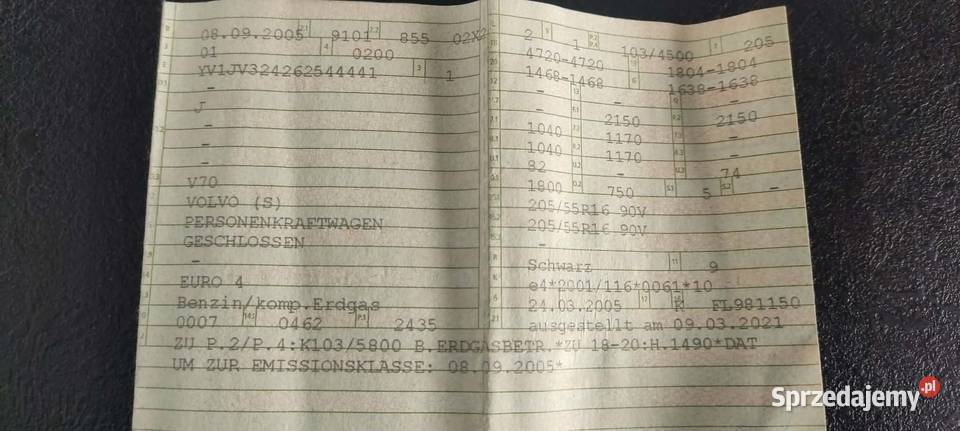 08.09.2005 9101 855 02X2
01 0200
YV1JV324262544441 1
-
J
-
-
-
V70
VOLVO (S)
PERSONENKRAFTWAGEN
GESCHLOSSEN
-
EURO 4
Benzin/komp.Erdgas
0007 0462 2435
2 1 103/4500 205
4720-4720 1804-1804
1468-1468 1638-1638
- - -
- 2150 2150
1040 1170 -
1040 1170 -
82 - 74
1800 750 5 -
205/55R16 90V
205/55R16 90V
-
Schwarz 9
e4*2001/116*0061*10
24.03.2005 K FL981150
ausgestellt am 09.03.2021
ZU P.2/P.4:K103/5800 B.ERDGASBETR.*ZU 18-20:H.1490*DAT
UM ZUR EMISSIONSKLASSE: 08.09.2005*
Sprzedajemy.pl